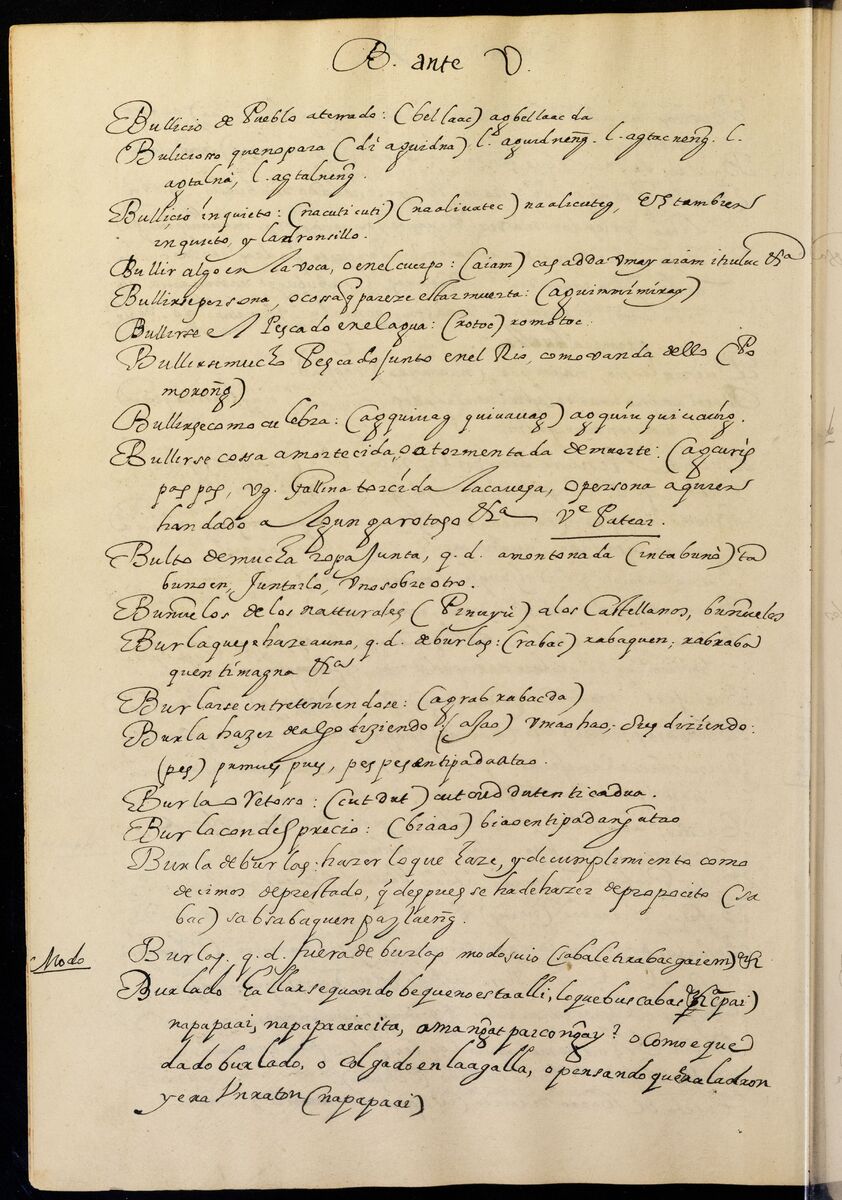 B. ante V.
Bullicio de Pueblo aterrado: (bellaac) agbellaac da
Bulicioso que no para (di aguidna) l. aguidneng̃. l. agtacneng̃. l.
agtalna, l. agtalneng̃.
Bullicio inquieto: (nacuticuti) (naalivatec) naalicuteg, es tambien
inquieto, y ladronsillo.
Bullir algo en la voca, o en el cuerpo: (aiam) cas adda vmay aiam itiuluc &ª
Bullirse persona, o cossa q̃ pareze estar muerta: (aguimmimiray)
Bullirse el Pescado en el agua: (rotoc) romotoc.
Bullirse mucho Pescado junto en el Rio, como vanda dello (Po
morong̃)
Bullirse como culebra: (agquivag quivauag) agquiu quivaũig.
Bullirse cossa amortecida, o atormentada de muerte: (agcuris
pas pas, vg. Gallina torcida la caveza, o persona a quien
han dado algun garrotaso &ª Vᵉ Patear.
Bulto de mucha ropa junta, q. d. amontonada (intabuno) ta
bunoen, Juntarlo, vno sobre otro.
Buñuelos de los natturales (Pinuyu) a los Castellanos, buñuelos
Burla que se haze a uno, q. d. de burlas: (rabac) rabaquen; rabraba
quen ti magna &ª
Burlarse entreteniendose: (agrab rabac da)
Burla hazer de algo diziendo: (asao) vmao hao; diziendo:
(pes) pumues pues, pes pes en ti padaatao.
Burla o Vetoso: (cut dut) cut cud duten ti cadua.
Burla con desprecio: (biaao) biaoen ti padang̃atao
Burla de burlas: hazer lo que haze, y de cumplimiento como
decimos de prestado, q̃ despues se ha de hazer de proposito (sa
bac) sabsabaquen pay laeng̃.
Modo Burlas. q. d. fuera de burlas modo suio (sabaletirabac gaiem) &
Burlado hallarse quando be que no esta alli, lo que buscaba &ª (pai)
napapaai, napapaaiacita, amang̃at parcong̃ay? o como e que
dado burlado, o colgado en la agalla, o pensando que era ladron
y era Vn raton (napapaai)